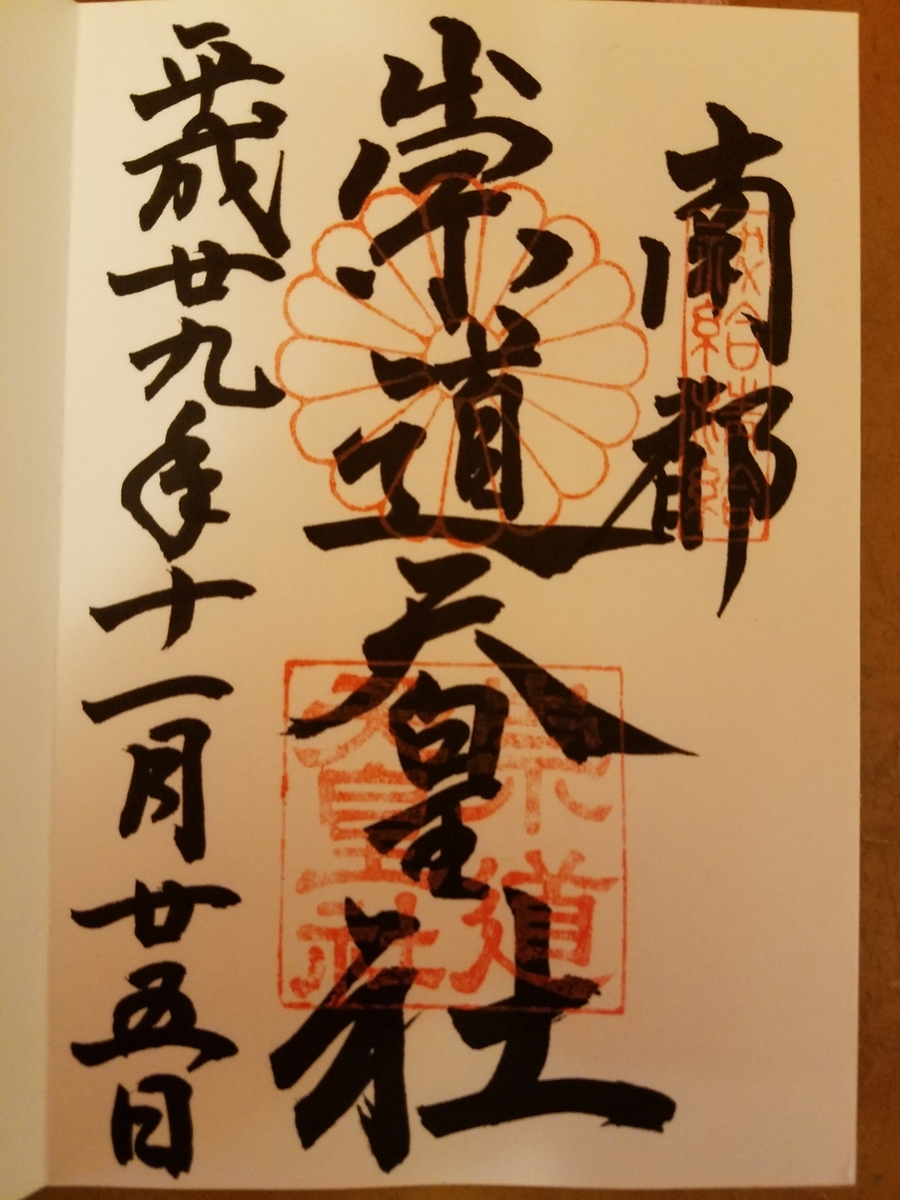 南都
崇道天皇社
平成廿九年十一月廿五日
崇道
天皇社